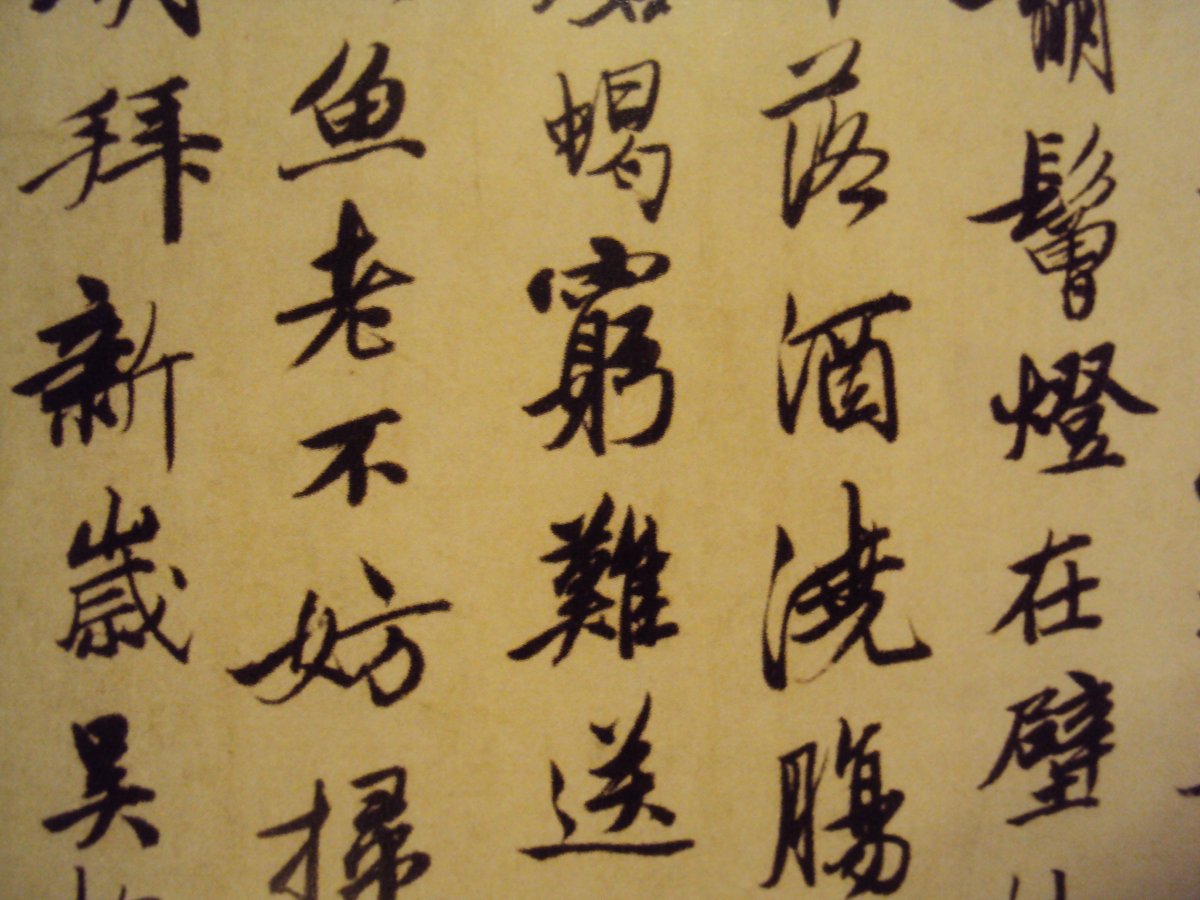 鬅鬙燈在壁
落酒澆腸
蝎窮難送
魚老不妨掃
拜新歲吳